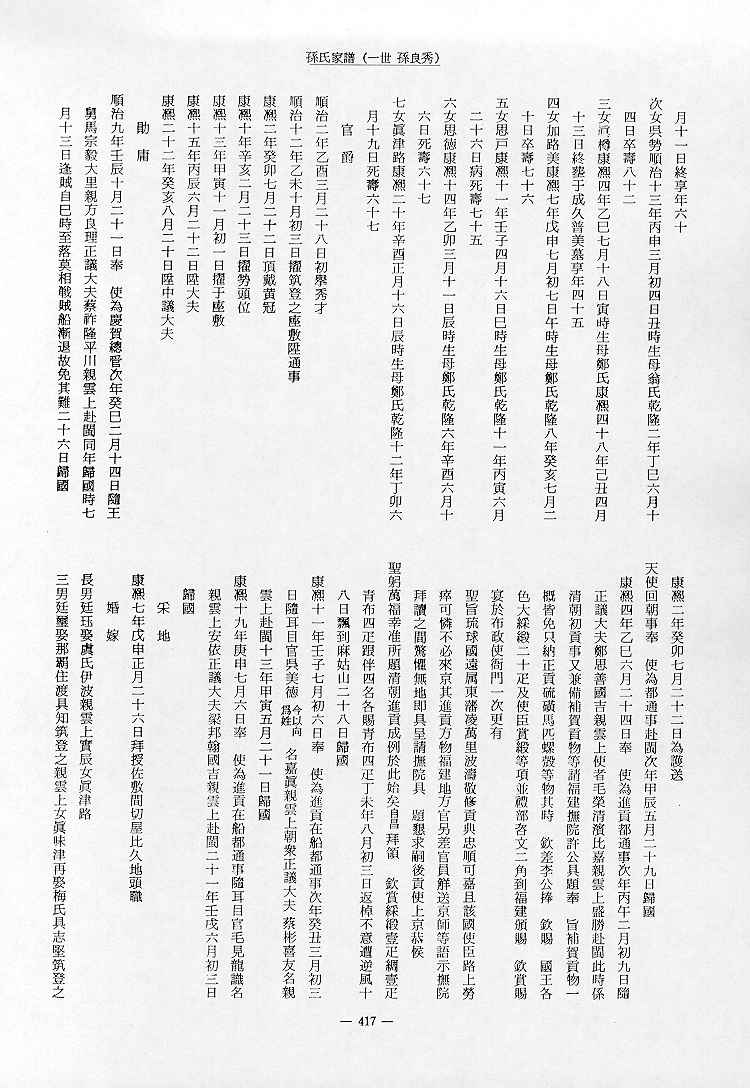 孫氏家譜（一世 孫良秀）
月十一日終享年六十
次女呉勢順治十三年丙申三月初四日丑時生母翁氏乾隆二年丁巳六月十
四日卒壽八十二
三女眞樽康熙四年乙巳七月十八日寅時生母鄭氏康熙四十八年己丑四月
十三日終葬于成久普美墓享年四十五
四女加路美康熙七年戊申七月初七日午時生母鄭氏乾隆八年癸亥七月二
十日卒壽七十六
五女思戸康熙十一年壬子四月十六日巳時生母鄭氏乾隆十一年丙寅六月
二十六日病死壽七十五
六女思德康熙十四年乙卯三月十一日辰時生母鄭氏乾隆六年辛酉六月十
六日死壽六十七
七女眞津路康熙二十年辛酉正月十六日辰時生母鄭氏乾隆十二年丁卯六
月十九日死壽六十七
官爵
順治二年乙酉三月二十八日初擧秀才
順治十二年乙未十月初三日擢筑登之座敷陞通事
康熙二年癸卯七月二十二日頂戴黃冠
康熙十年辛亥二月二十三日擢勢頭位
康熙十三年甲寅十一月初一日擢于座敷
康熙十五年丙辰六月二十二日陞大夫
康熙二十二年癸亥八月二十日陞中議大夫
勛庸
順治九年壬辰十月二十一日奉　使為慶賀總管次年癸巳二月十四日隨王
舅馬宗毅大里親方良理正議大夫蔡祚隆平川親雲上赴閩同年歸國時七
月十三日逢賊自巳時至落莫相戰賊船漸退故免其難二十六日歸國
康熙二年癸卯七月二十二日為護送
天使回朝事奉　使為都通事赴閩次年甲辰五月二十九日歸國
康熙四年乙巳六月二十四日奉　使為進貢都通事次年丙午二月初九日隨
正議大夫鄭思善國吉親雲上使者毛榮清濱比嘉親雲上盛勝赴閩此時係
清朝初貢事又兼備補賀貢物等請福建撫院許公具題奉　旨補賀貢物一
概皆免只納正貢硫磺馬匹螺殼等物其時　欽差李公捧　欽賜　國王各
色大綵緞二十疋及使臣賞緞等項並禮部咨文二角到福建頒賜　欽賞賜
宴於布政使衙門一次更有
聖旨琉球國遠属東藩凌萬里波濤敬修貢典忠順可嘉且該國使臣路上勞
瘁可憐不必來京其進貢方物福建地方官另差官員觧送京師等語示撫院
拜讀之間驚懼無地即具呈請撫院具　題懇求嗣後貢使上京恭候
聖躬萬福幸准所願清朝進貢成例於此始矣自昌拜領　欽賞綵緞壹疋綢壹疋
青布四疋跟伴四名各賜青布四疋丁未年八月初三日返棹不意遭逆風十
八日飄到麻姑山二十八日歸國
康熙十一年壬子七月初六日奉　使為進貢在船都通事次年癸丑三月初三
日隨耳目官呉美德今以向為姓　名嘉眞親雲上朝衆正議大夫蔡彬喜友名親
雲上赴閩十三年甲寅五月二十一日歸國
康熙十九年庚申七月六日奉　使為進貢在船都通事隨耳目官毛見龍識名
親雲上安依正議大夫梁邦翰國吉親雲上赴閩二十一年壬戌六月初三日
歸國
采地
康熙七年戊申正月二十六日拜授佐敷間切屋比久地頭職
婚嫁
長男廷珏娶虞氏伊波親雲上實辰女眞津路
三男廷璽娶那覇住渡具知筑登之親雲上女眞味津再娶梅氏具志堅筑登之
— 417 —